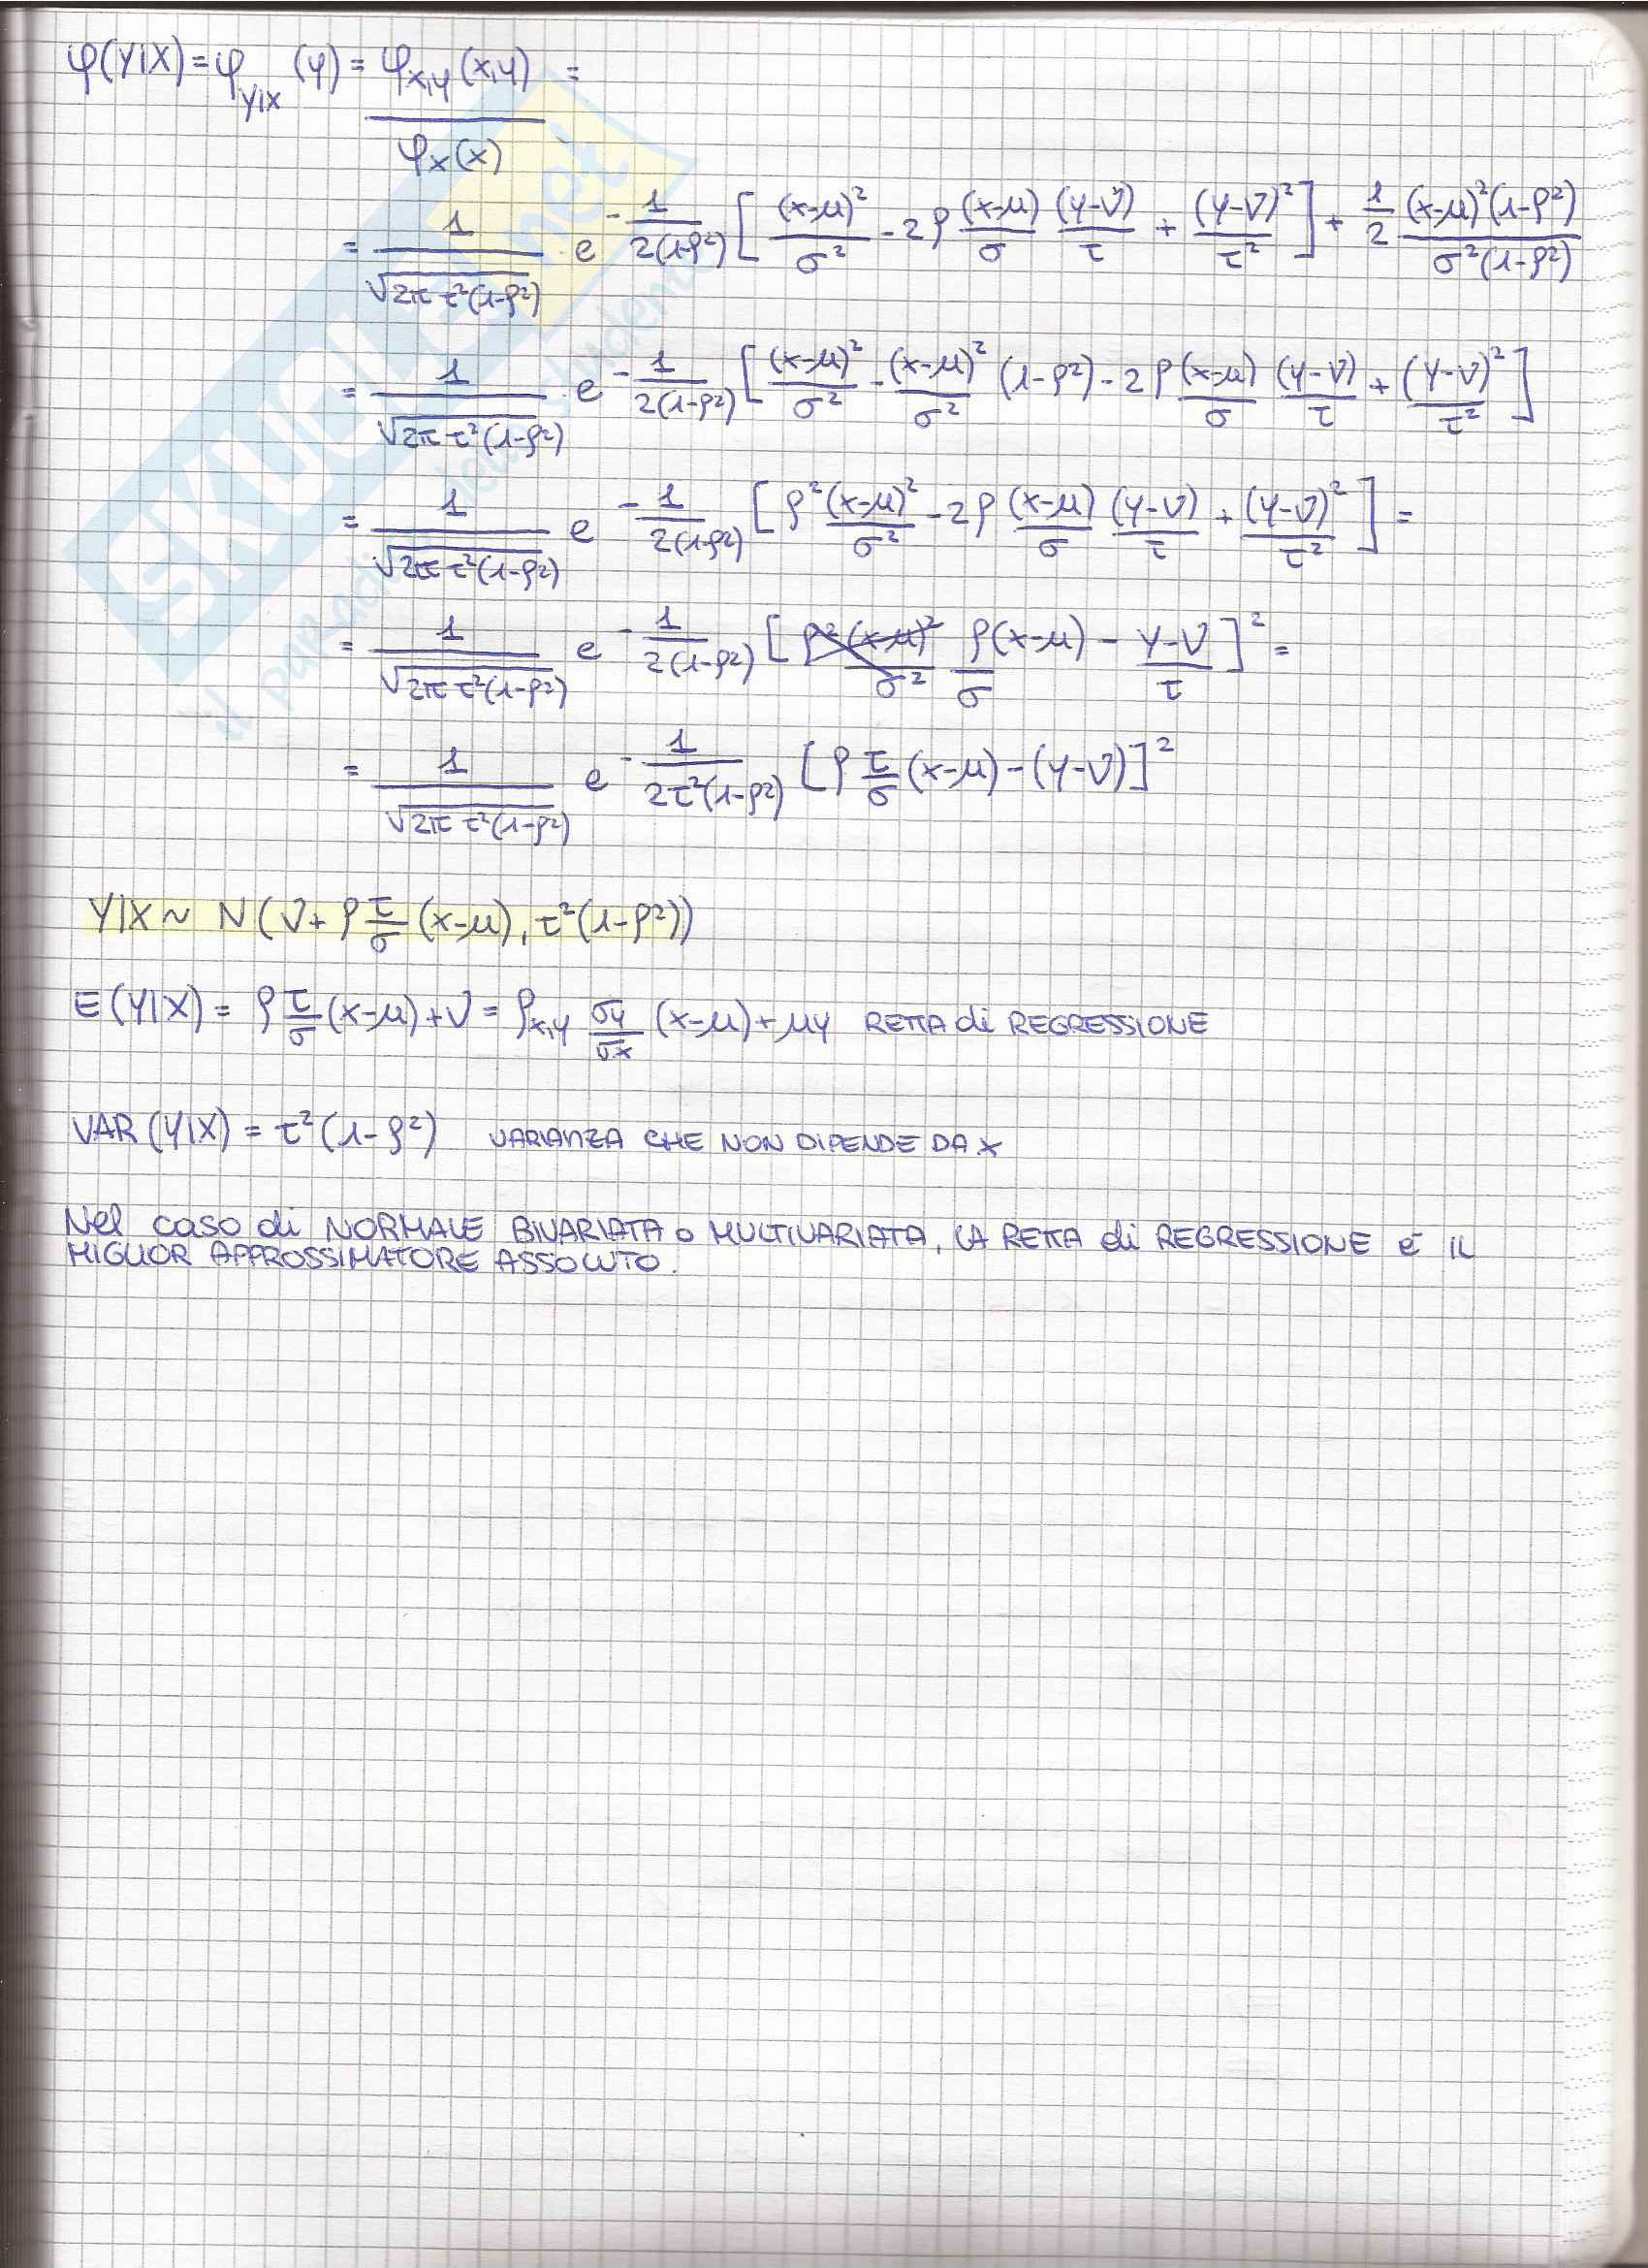 φ(Y|X) = φ_{Y|X}(y) = φ_{X,Y}(x,y) / φ_X(x) =
= 1/√(2π τ²(1-ρ²)) · e^{-1/(2(1-ρ²)) [(x-μ)²/σ² - 2ρ (x-μ)/σ (y-ν)/τ + (y-ν)²/τ²] + 1/2 (x-μ)²(1-ρ²)/(σ²(1-ρ²))}
= 1/√(2π τ²(1-ρ²)) · e^{-1/(2(1-ρ²)) [(x-μ)²/σ² - (x-μ)²/σ² (1-ρ²) - 2ρ (x-μ)/σ (y-ν)/τ + (y-ν)²/τ²]}
= 1/√(2π τ²(1-ρ²)) e^{-1/(2(1-ρ²)) [ρ² (x-μ)²/σ² - 2ρ (x-μ)/σ (y-ν)/τ + (y-ν)²/τ²]} =
= 1/√(2π τ²(1-ρ²)) e^{-1/(2(1-ρ²)) [ρ² (x-μ)²/σ² ρ/σ (x-μ) - (y-ν)/τ]²} =
= 1/√(2π τ²(1-ρ²)) e^{-1/(2τ²(1-ρ²)) [ρ τ/σ (x-μ) - (y-ν)]²}
Y|X ~ N(ν + ρ τ/σ (x-μ), τ²(1-ρ²))
E(Y|X) = ρ τ/σ (x-μ) + ν = ρ_{x,y} σy/σx (x-μ) + μy RETTA di REGRESSIONE
VAR(Y|X) = τ²(1-ρ²) VARIANZA CHE NON DIPENDE DA X
Nel caso di NORMALE BIVARIATA o MULTIVARIATA, LA RETTA di REGRESSIONE è IL
MIGLIOR APPROSSIMATORE ASSOLUTO.